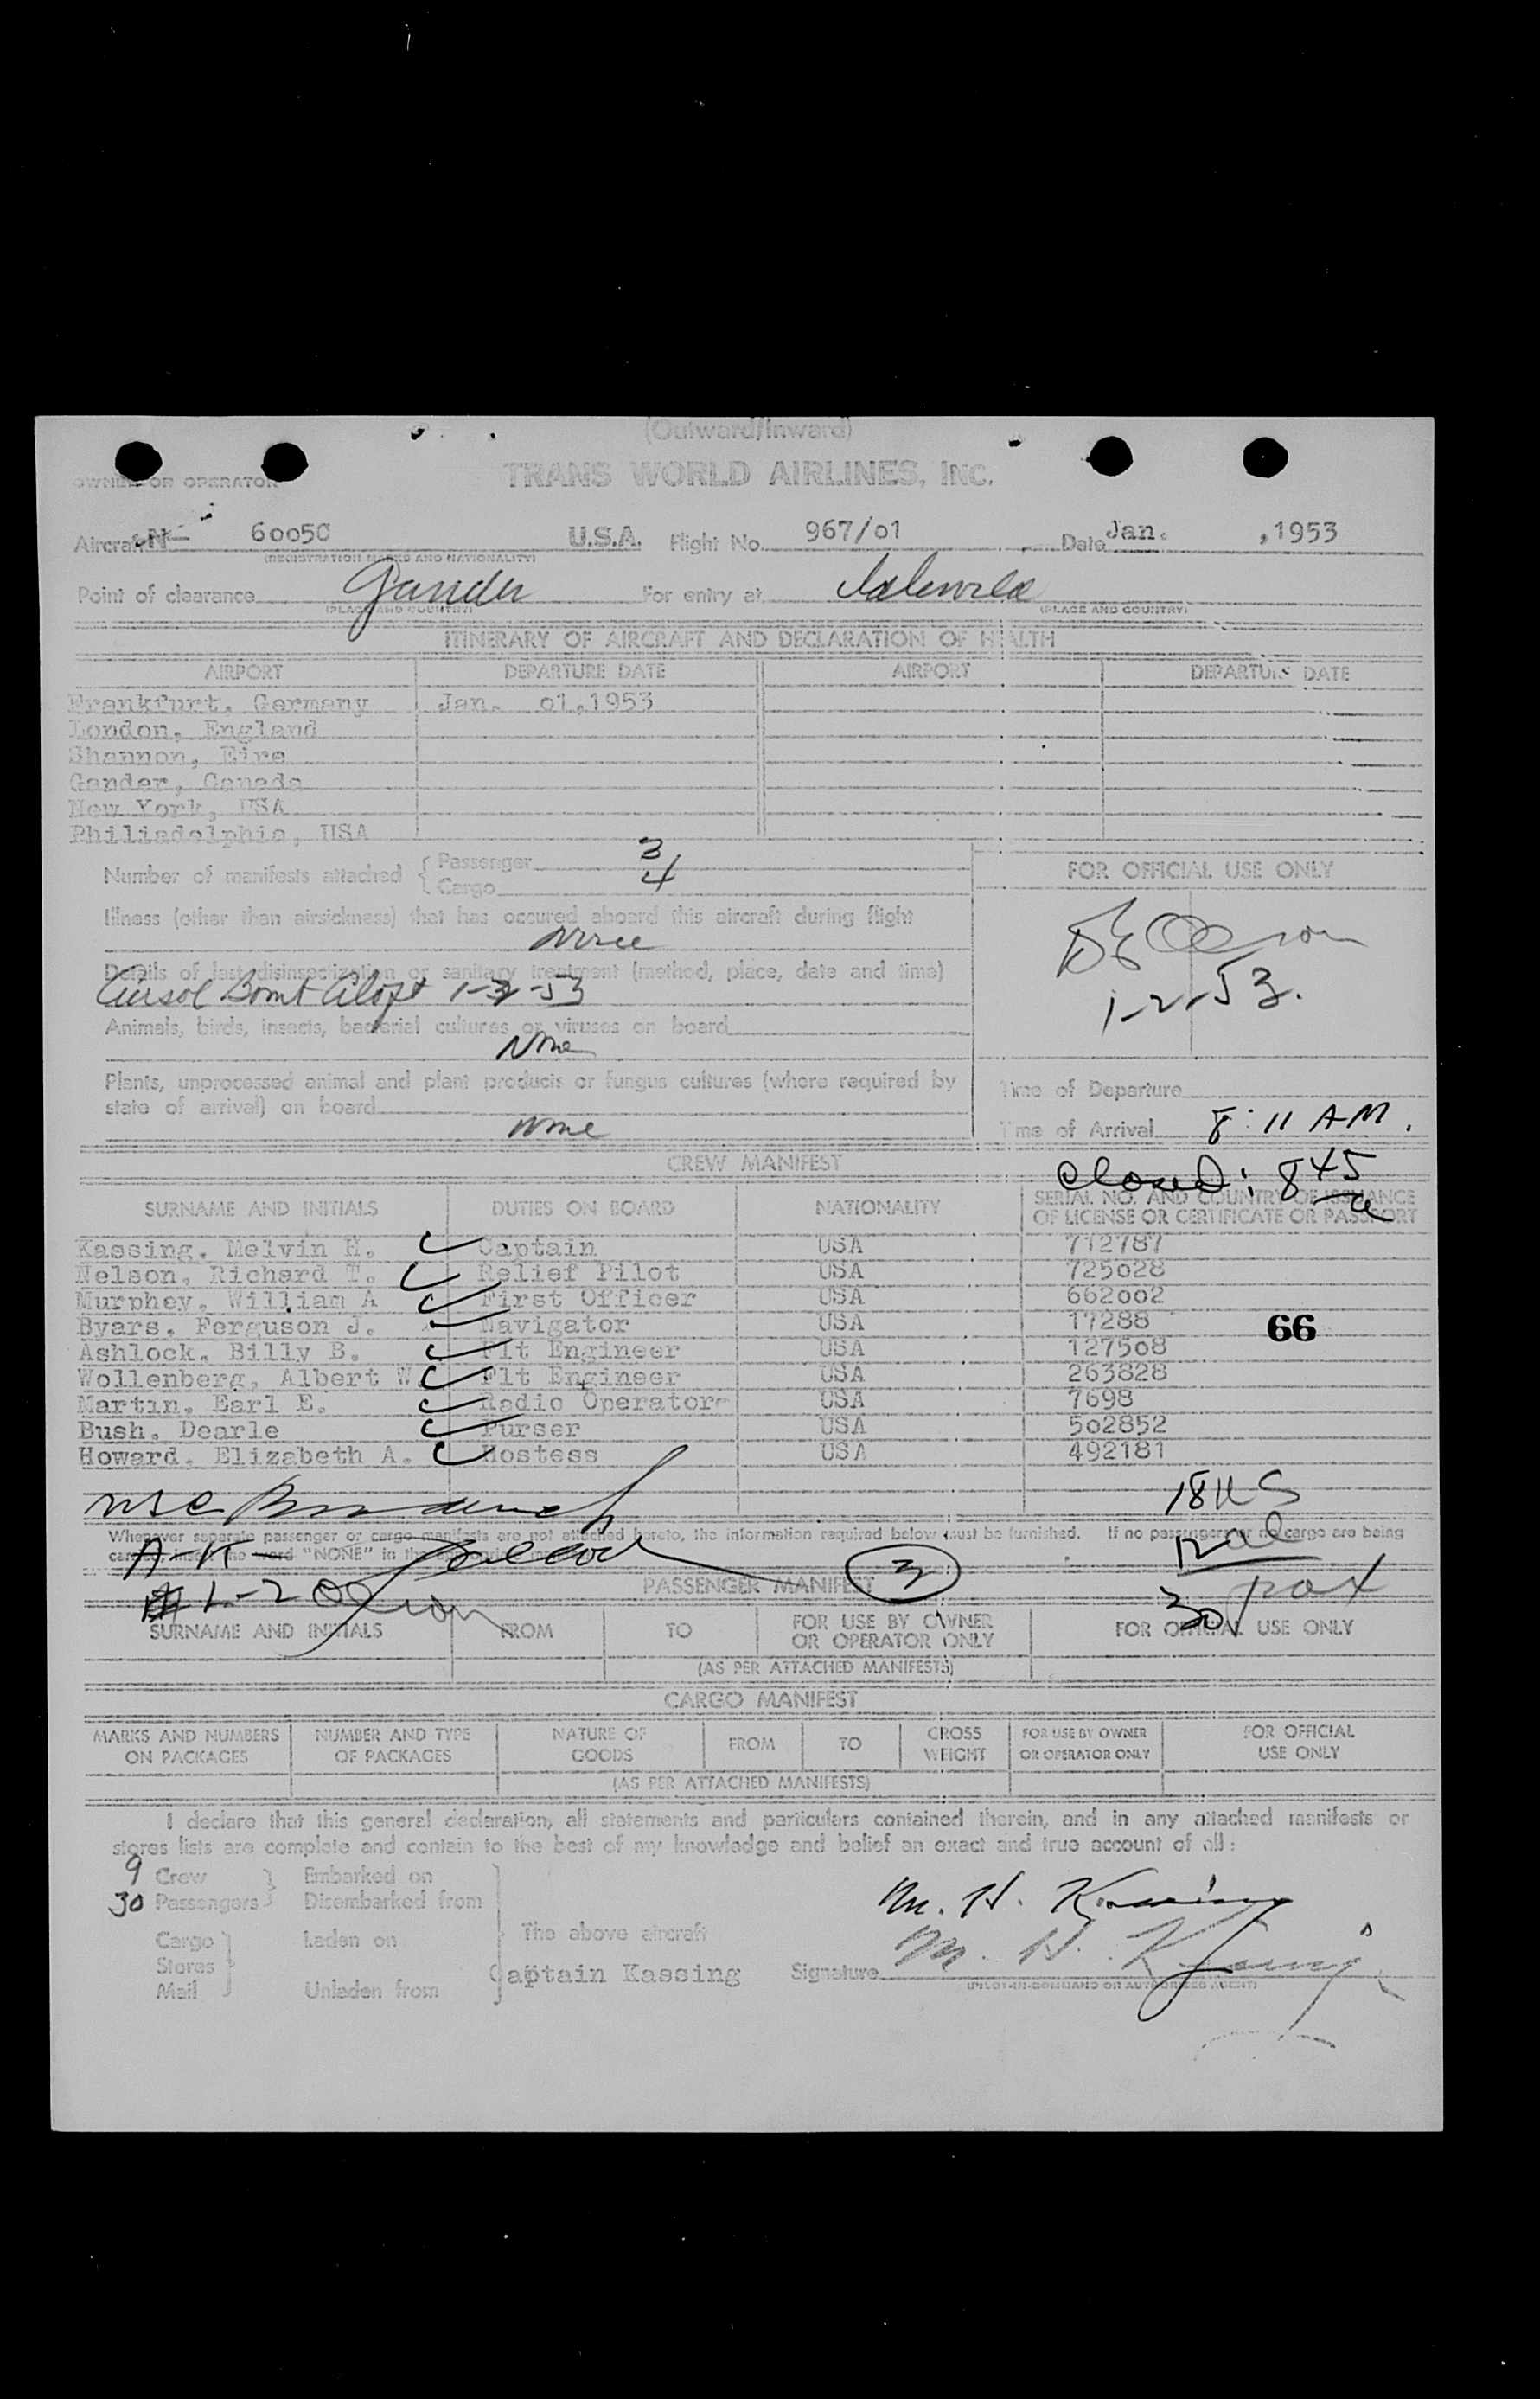 (Outward/Inward)
OWNER OR OPERATOR TRANS WORLD AIRLINES, INC.
Aircraft N- 6005C U.S.A. Flight No. 967/01 Date Jan. ,1953
(REGISTRATION MARKS AND NATIONALITY)
Point of clearance Gander For entry at Idlewild
(PLACE AND COUNTRY) (PLACE AND COUNTRY)
ITINERARY OF AIRCRAFT AND DECLARATION OF HEALTH
AIRPORT DEPARTURE DATE AIRPORT DEPARTURE DATE
Frankfurt, Germany Jan. 01,1953
London, England
Shannon, Eire
Gander, Canada
New York, USA
Philiadelphia, USA
Number of manifests attached { Passenger 3
Cargo 4
FOR OFFICIAL USE ONLY
Illness (other than airsickness) that has occured aboard this aircraft during flight
None
Details of last disinsectization or sanitary treatment (method, place, date and time)
1-2-53
1-2-53.
Animals, birds, insects, bacterial cultures or viruses on board
None
Plants, unprocessed animal and plant products or fungus cultures (where required by
state of arrival) on board
None
Time of Departure
Time of Arrival 8:11 AM.
CREW MANIFEST
Closed: 845
SURNAME AND INITIALS DUTIES ON BOARD NATIONALITY SERIAL NO. AND COUNTRY OF ISSUANCE
OF LICENSE OR CERTIFICATE OR PASSPORT
Kassing, Melvin H. Captain USA 712787
Nelson, Richard T. Relief Pilot USA 725028
Murphey, William A First Officer USA 662002
Byars, Ferguson J. Navigator USA 17288
66
Ashlock, Billy B. Flt Engineer USA 127508
Wollenberg, Albert W. Flt Engineer USA 263828
Martin, Earl E. Radio Operator USA 7698
Bush, Dearle Purser USA 502852
Howard, Elizabeth A. Hostess USA 492181
18 US
Whenever separate passenger or cargo manifests are not attached hereto, the information required below must be furnished. If no passengers or no cargo are being
carried, insert the word "NONE" in the
12 al
A-K-
3
PASSENGER MANIFEST
L-Z Olson
30 pax
SURNAME AND INITIALS FROM TO FOR USE BY OWNER
OR OPERATOR ONLY FOR OFFICIAL USE ONLY
(AS PER ATTACHED MANIFESTS)
CARGO MANIFEST
MARKS AND NUMBERS
ON PACKAGES NUMBER AND TYPE
OF PACKAGES NATURE OF
GOODS FROM TO GROSS
WEIGHT FOR USE BY OWNER
OR OPERATOR ONLY FOR OFFICIAL
USE ONLY
(AS PER ATTACHED MANIFESTS)
I declare that this general declaration, all statements and particulars contained therein, and in any attached manifests or
stores lists are complete and contain to the best of my knowledge and belief an exact and true account of all:
9 Crew Embarked on
30 Passengers Disembarked from
M. H. Kassing
Cargo Laden on The above aircraft
Stores
Mail Unladen from Captain Kassing Signature M. H. Kassing
(PILOT-IN-COMMAND OR AUTHORIZED AGENT)